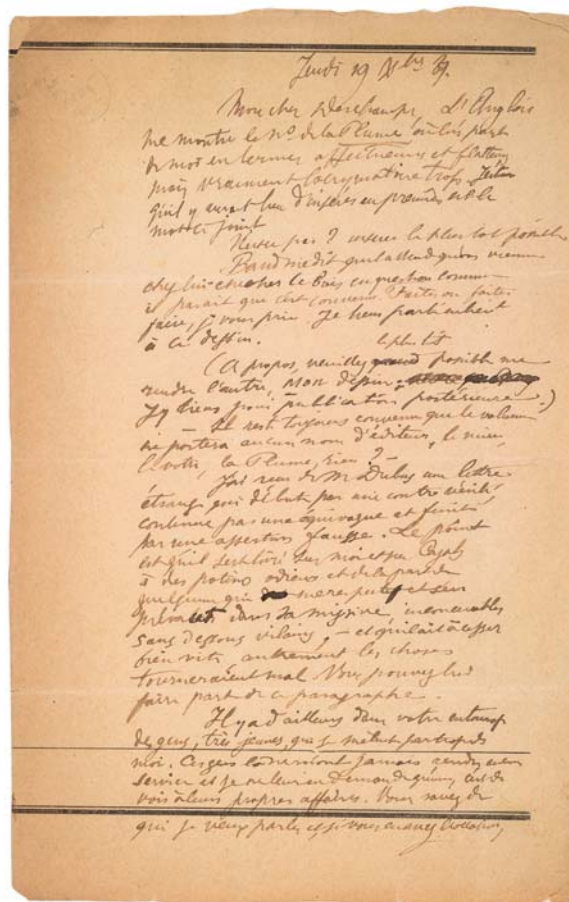 Jeudi 19 Xbre 89.
Mon cher Deschamps, L'Anglois
me montre le no de la Plume où l'on parle
de moi en termes affectueux et flatteurs
mais vraiment lacrymatoire trop.
qu'il y aurait lieu d'insérer en
mot ci-joint
pas ? insérez le plus tôt possible
Baud me dit qu'il attend qu'on vienne
chez lui chercher le bois en question comme
il parait que c'est convenu. Faites ou faites
faire, je vous prie. Je tiens particulièrement
à ce dessin.
le plus tôt
(A propos, veuillez possible me
rendre l'autre, mon dessin
J'y tiens pour publication postérieure.)
— Il reste toujours convenu que le volume
ne portera aucun nom d'éditeur, le mien,
le votre, la Plume, rien ? —
J'ai reçu de M Dubus une lettre
étrange qui débute par une contre vérité,
continue par une équivoque et finit
par une assertion fausse. Le point
est qu'il s'est livré sur moi et sur Cazals
à des potins odieux et de la part de
quelqu'un qui me respecte et s'en
prévaut dans sa missive, inconcevables
sans dessous vilains, — et qu'il ait à cesser
bien vite, autrement les choses
tourneraient mal. Vous pouvez lui
faire part de ce paragraphe.
Il y a d'ailleurs dans votre entourage
des gens, très jeunes, qui se mêlent par trop de
moi. Ces gens ne m'ont jamais rendu aucun
service et je ne leur en demande qu'un, c'est de
voir à leurs propres affaires. Vous savez de
qui je veux parler et, si vous en avez l'occasion,